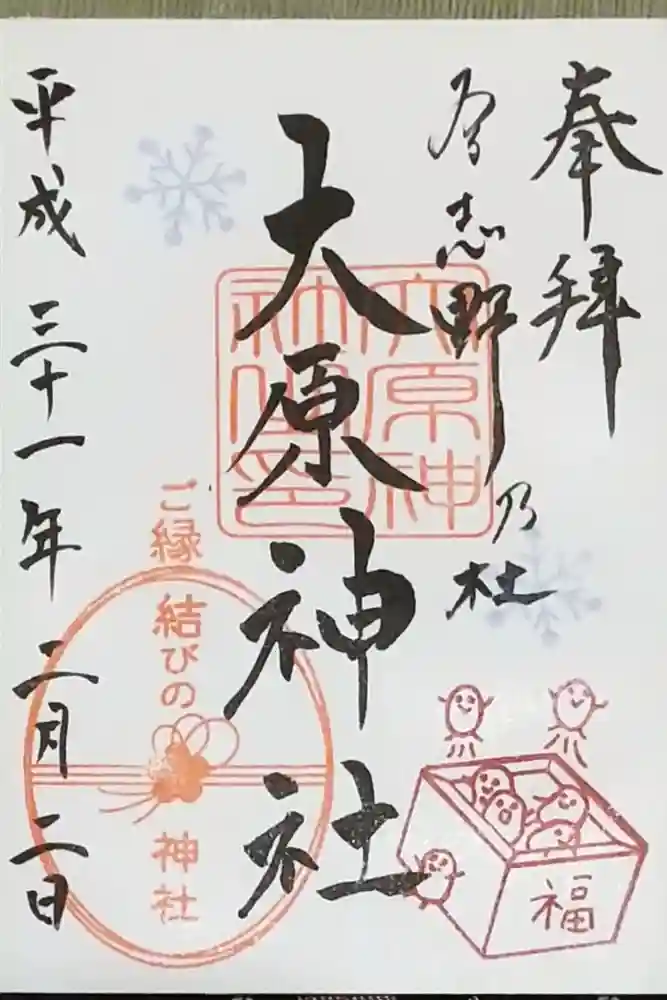 奉拝
志野乃杜
大原神社
平成三十一年二月二日
大原神社印
ご縁結びの神社
福